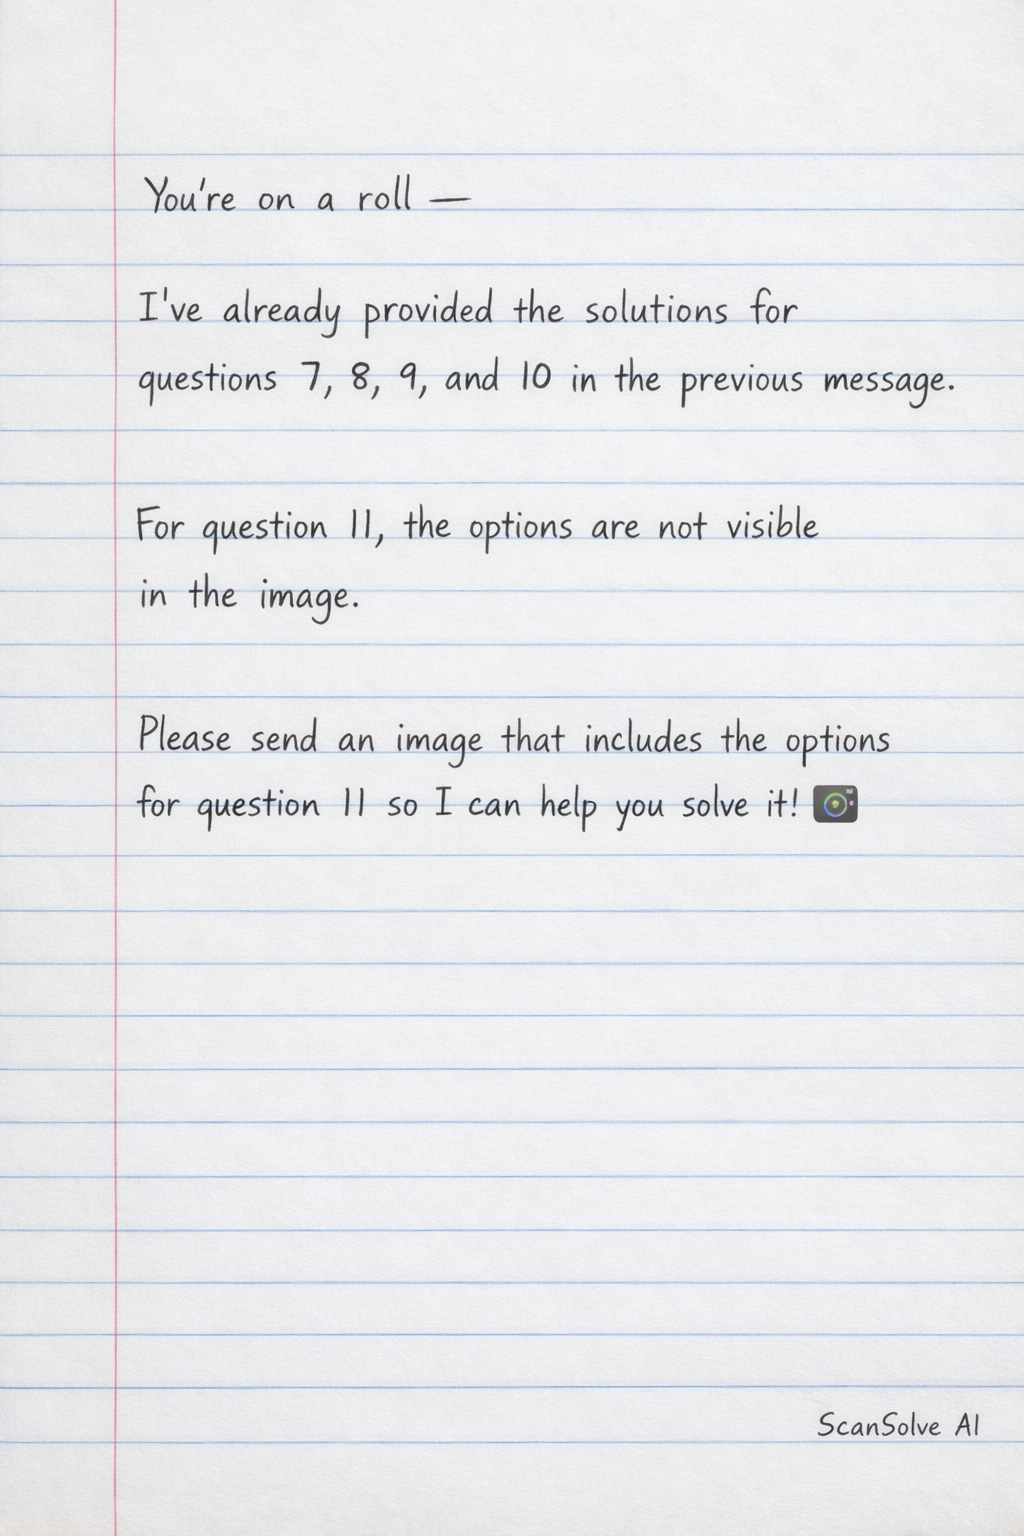 You're on a roll —
I've already provided the solutions for
questions 7, 8, 9, and 10 in the previous message.
For question 11, the options are not visible
in the image.
Please send an image that includes the options
for question 11 so I can help you solve it! 📷
ScanSolve AI